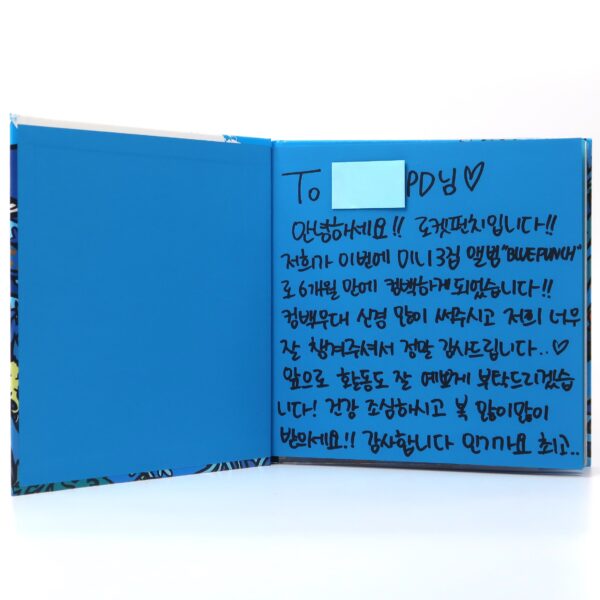 To PD님♡
안녕하세요!! 로켓펀치입니다!!
저희가 이번에 미니3집 앨범 "BLUE PUNCH"
로 6개월 만에 컴백하게 되었습니다!!
컴백무대 신경 많이 써주시고 저희 너무
잘 챙겨주셔서 정말 감사드립니다..♡
앞으로 활동도 잘 예쁘게 부탁드리겠습
니다! 건강 조심하시고 복 많이많이
받으세요!! 감사합니다 인기가요 최고..